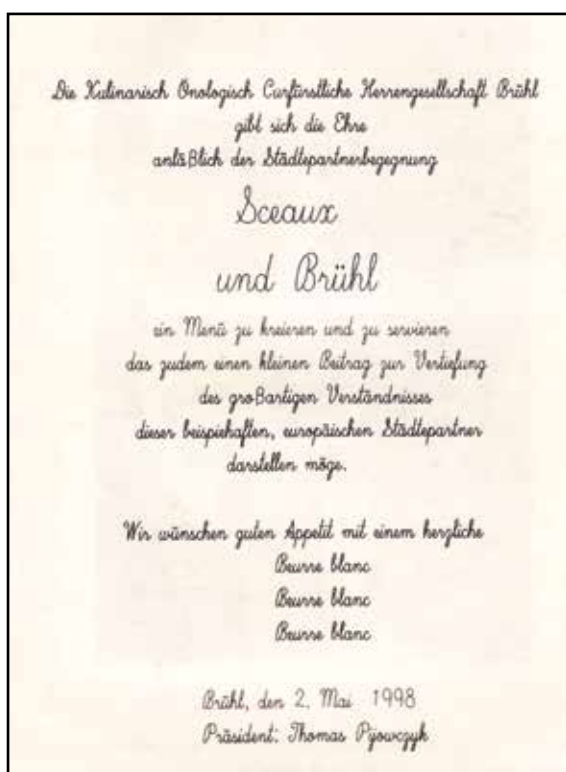 Die Kulinarisch Önologisch Curfürstliche Herrengesellschaft Brühl
gibt sich die Ehre
anläßlich der Städtepartnerbegegnung
Sceaux
und Brühl
ein Menü zu kreieren und zu servieren
das zudem einen kleinen Beitrag zur Vertiefung
des großartigen Verständnisses
dieser beispiehaften, europäischen Städtepartner
darstellen möge.
Wir wünschen guten Appetit mit einem herzliche
Beurre blanc
Beurre blanc
Beurre blanc
Brühl, den 2. Mai 1998
Präsident: Thomas Pyowczyk